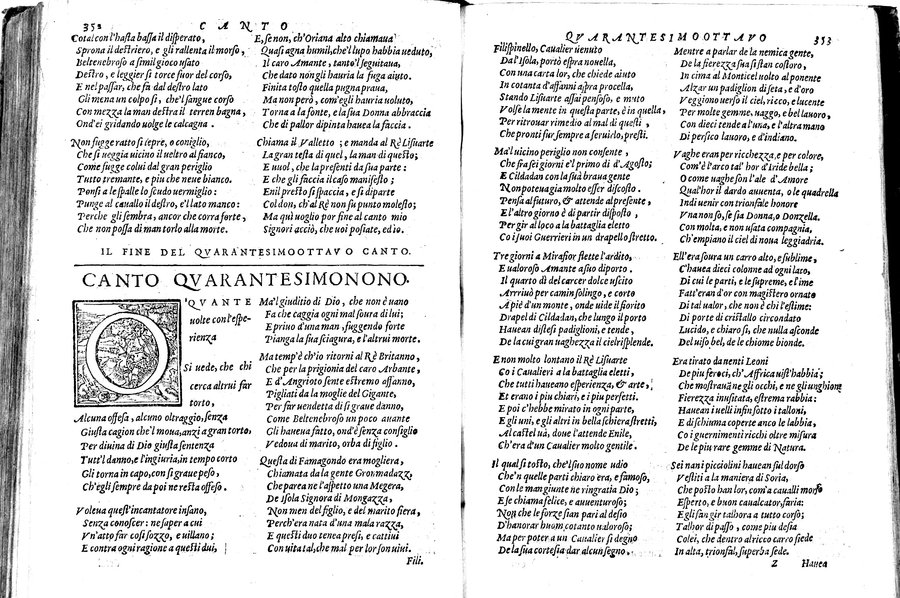 352 CANTO
Cotal con l'hasta bassa il disperato,
Sprona il destriero, e gli rallenta il morso,
Beltenebroso a simil gioco usato
Destro, e leggier si torce fuor del corso,
E nel passar, che fà dal destro lato
Gli mena un colpo sì, che'l sangue corso
Con mezza la man destra il terren bagna,
Ond'ei gridando uolge le calcagna.
Non fugge ratto sì lepre, o coniglio,
Che si ueggia uicino il ueltro al fianco,
Come fugge colui dal gran periglio
Tutto tremante, e piu che neue bianco.
Ponsi a le spalle lo scudo uermiglio:
Punge al cauallo il destro, e'l lato manco:
Perche gli sembra, ancor che corra forte,
Che non possa di man torlo alla morte.
E, se non, ch'Oriana alto chiamaua
Quasi agna humil, che'l lupo habbia ueduto,
Il caro Amante, tanto'l seguitaua,
Che dato non gli hauria la fuga aiuto.
Finita tosto quella pugna praua,
Ma non però, com'egli hauria uoluto,
Torna a la fonte, e la sua Donna abbraccia
Che di pallor dipinta hauea la faccia.
Chiama il Valletto; e manda al Rè Lisuarte
La gran testa di quel, la man di questo;
E uuol, che la presenti da sua parte:
E che gli faccia il caso manifesto;
Enil presto si spaccia, e si diparte
Col don, ch'al Rè non fu punto molesto;
Ma quì uoglio por fine al canto mio
Signori acciò, che uoi posiate, ed io.
IL FINE DEL QVARANTESIMOOTTAVO CANTO.
CANTO QVARANTESIMONONO.
O QVANTE
uolte con l'espe-
rienza
Si uede, che chi
cerca altrui far
torto,
Alcuna offesa, alcuno oltraggio, senza
Giusta cagion che'l moua, anzi a gran torto,
Per diuina di Dio giusta sentenza
Tutt'l danno, e l'ingiuria, in tempo corto
Gli torna in capo, con sì graue peso,
Ch'egli sempre da poi ne resta offeso.
Volena quest'incantatore insano,
Senza conoscer: ne saper a cui
Vn'atto far così sozzo, e uillano;
E contra ogni ragione a questi dui,
Ma'l giuditio di Dio, che non è uano
Fa che caggia ogni mal soura di lui;
E priuo d'una man, fuggendo forte
Pianga la sua sciagura, e l'altrui morte.
Ma temp'è ch'io ritorni al Rè Britanno,
Che per la prigionia del caro Arbante,
E d'Angrioto sente estremo affanno,
Pigliati da la moglie del Gigante,
Per far uendetta di sì graue danno,
Come Beltenebroso un poco auante
Gli haueua fatto, ond'è senza consiglio
Vedoua di marito, orba di figlio.
Questa di Famagondo era mogliera,
Chiamata da la gente Gronmadazz,
Che parea ne l'aspetto una Megera,
De isola Signora di Mongazza,
Non men del figlio, e del marito fiera,
Perch'era nata d'una mala razza,
E questi duo tenea presi, e cattiui
Con uita tal, che mal per lor son uiui.
Fili.
QVARANTESIMOOTTAVO 353
Filispinello, Caualier uenuto
Dal'Isola, portò espra nouella,
Con una carta lor, che chiede aiuto
In cotanta d'affanni aspra procella,
Stando Lisuarte assai pensoso, e muto
Volse la mente in questa parte, e in quella,
Per ritronar rimedio al mal di questi,
Che pronti fur sempre a seruirlo, presti.
Ma'l uicino periglio non consente,
Che fra sei giorni e'l primo di d'Agosto;
E Cildadan con la sua braua gente
Non poteua gia molto esser discosto.
Pensa al futuro, & attende al presente,
E l'altro giorno è di partir disposto,
Per gir al loco a la battaglia eletto
Co i suoi Guerrieri in un drapello stretto.
Tre giorni a Mirafior stette l'ardito,
E ualoroso Amante a suo diporto.
Il quarto dì del carcer dolce uscito
Arriuò per camin solingo, e corto
A piè d'un monte, onde uide il fiorito
Drapel di Cildadan, che lungo il porto
Hauean distesi padiglioni, e tende,
De la cui gran uaghezza il ciel risplende.
E non molto lontano il Rè Lisuarte
Co i Caualieri a la battaglia eletti,
Che tutti haueano esperienza, & arte,
Et erano i piu chiari, e i piu perfetti.
E poi c'hebbe mirato in ogni parte,
E gli uni, e gli altri in bella schiera stretti,
Al castel uà, doue l'attende Enile,
Ch'era d'un Caualier molto gentile.
Il qual sì tosto, che'l suo nome udio
Che'n quelle parti chiaro era, e famoso,
Con le man giunte ne ringratia Dio;
Se chiama felice, e auuenturoso;
Non che le forze sian pari al desio
D'honorar huom, cotanto ualoroso;
Ma per poter a un Caualier sì degno
De la sua cortesia dar alcun segno,
Mentre a parlar de la nemica gente,
De la fierezza sua si stan costoro,
In cima al Monticel uolto al ponente
Alzar un padiglion di seta, e d'oro
Veggiono uerso il ciel, ricco, e lucente
Per molte gemme, uaggo, e bel lauoro,
Con dieci tende a l'una, e l'altra mano
Di persico lauoro, e d'indiano.
Vaghe eran per ricchezza, e per colore,
Com'è l'arco tal'hor d'Iride bella;
O come uaghe son l'ale d'Amore
Qual'hor il dardo auuenta, o le quadrella
Indi uenir con trionfale honore
Vna non so, se sia Donna, o Donzella.
Con molta, e non usata compagnia,
Ch'empiano il ciel di noua leggiadria.
Ell'era soura un carro alto, e sublime,
C'hauea dieci colonne ad ogni lato,
Di cui le parti, e le supreme, e l'ime
Fatt'eran d'or con magistero ornato
Di tal ualor, che non è chi l'estime:
Di porte di cristallo circondato
Lucido, e chiaro sì, che nulla asconde
Del uiso bel, de le chiome bionde.
Era tirato da uenti Leoni
De piu feroci, ch'Affrica uist'habbia;
Che mostrauan ne gli occhi, e ne gl'unghioni
Fierezza inusitata, estrema rabbia:
Hauean i uelli insin sotto i talloni,
E di schiuma coperte anco le labbia,
Co i guernimenti ricchi oltre misura
De le piu rare gemme di Natura.
Sei nani picciolini hauean sul dorso
Vestiti a la maniera di Soria,
Che posto han lor, com'a caualli morso
Esperto, e buon caualcator, saria:
Egli san gir talhora a tutto corso;
Talhor di passo, come piu desia
Colei, che dentro al ricco carro siede
In alta, trionfal, superba sede.
Z Hauea